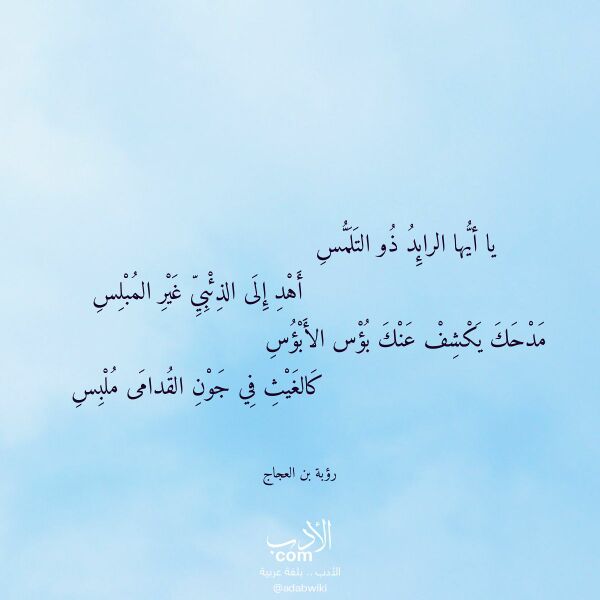 يا أيُّها الرايِدُ ذُو التَلَمُّسِ
أَهْدِ إِلَى الذِئْبِيِّ غَيْرِ المُبْلِسِ
مَدْحَكَ يَكْشِفْ عَنْكَ بُؤْس الأَبْؤُسِ
كَالغَيْثِ فِي جَوْنِ القُدامَى مُلْبِسِ
رؤبة بن العجاج
الأدب
com
الأدب .. بلغة عربية
@adabwiki